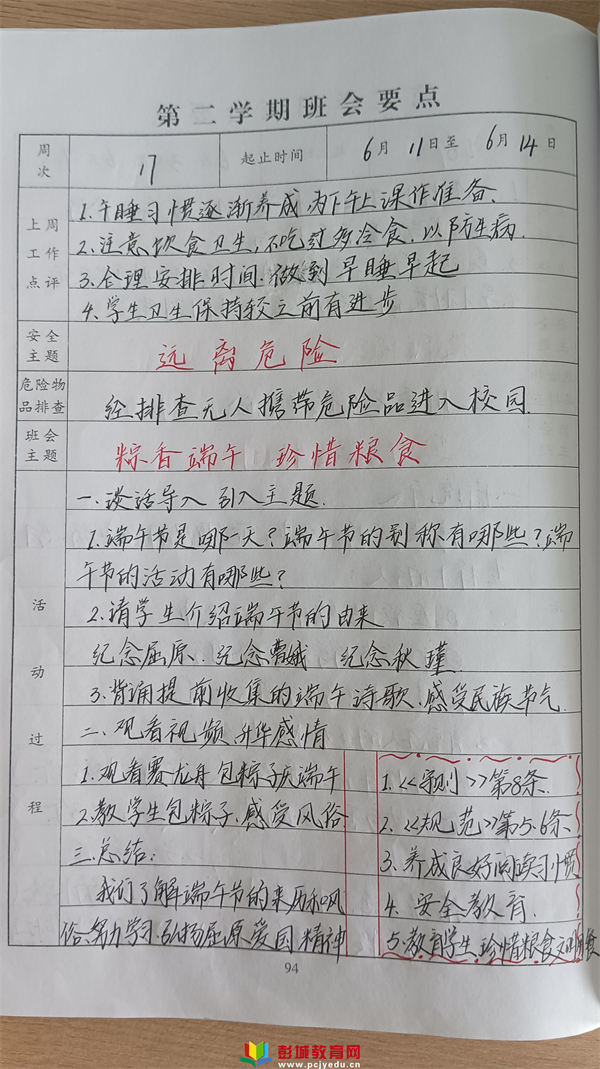 第二学期班会要点
周次 17 起止时间 6月11日至6月14日
上周工作点评
1.午睡习惯逐渐养成为下午上课作准备.
2.注意饮食卫生,不吃过多冷食.以防生病.
3.合理安排时间.做到早睡早起
4.学生卫生保持较之前有进步
安全主题 远离危险
危险物品排查 经排查无人携带危险品进入校园.
班会主题 粽香端午 珍惜粮食
活动过程
一.谈话导入 引入主题.
1.端午节是哪一天?端午节的别称有哪些?端
午节的活动有哪些?
2.请学生介绍端午节的由来
纪念屈原.纪念曹娥 纪念秋瑾.
3.背诵提前收集的端午诗歌.感受民族节气.
二.观看视频 升华感情
1.观看赛龙舟包粽子庆端午
2.教学生包粽子.感受风俗
三.总结:
我们了解端午节的来历和风
俗.努力学习.弘扬屈原爱国精神
1.《守则》第8条.
2.《规范》第5.6条
3.养成良好阅读习惯
4.安全教育.
5.教育学生珍惜粮食文明用食
94
彭城教育网
www.pcjyedu.cn